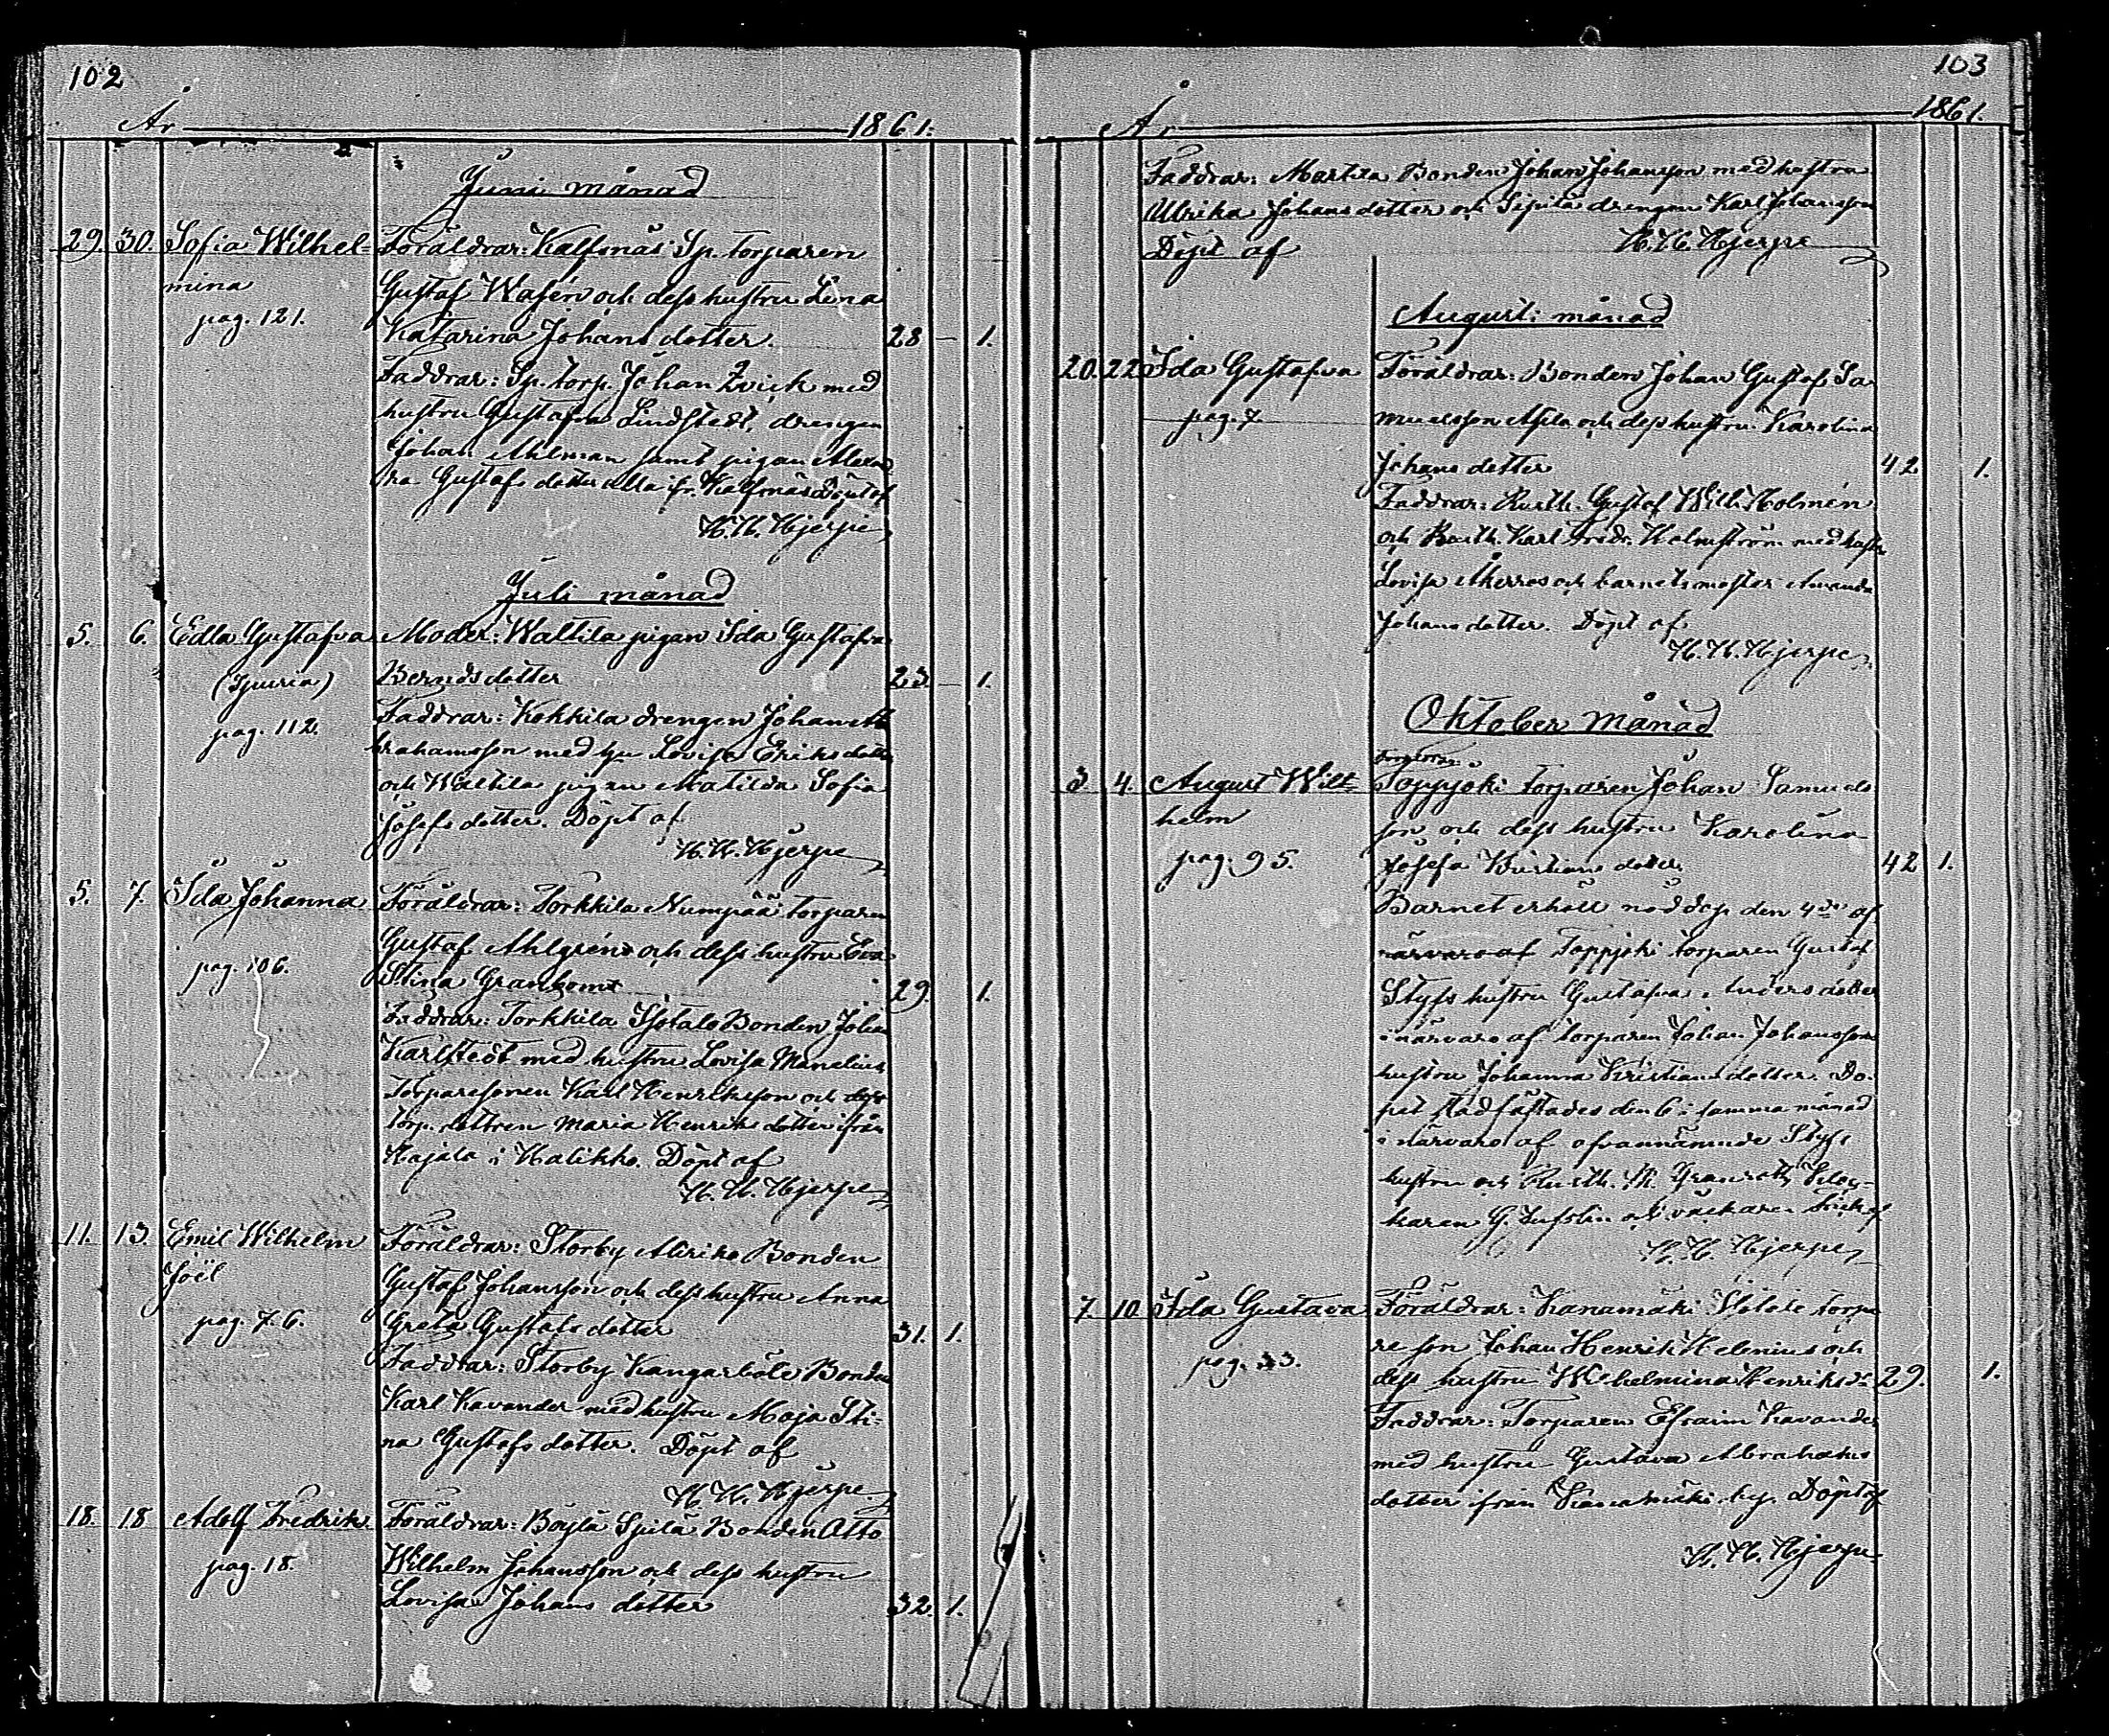 102
År 1861.
Juni månad
29. 30. Sofia Wilhel- Föräldrar: Kalfsnäs Sp. torparen
mina Gustaf Wasén och dess hustru Lena
pag. 121. Katarina Johans dotter. 28 - 1.
Faddrar: Sp. torp. Johan Zvick med
hustru Gustafva Lindstedt, drengen
Johan Ahlman samt pigan
Gustafs dotter alla fr. Kalfsnäs Döpt af
H. H. Hjerpe
Juli månad
5. 6. Edla Gustafva Moder: Waltila pigan Ida Gustafva
Bernds dotter 23. - 1.
pag. 112. Faddrar: Kokkila drengen Johan A
brahamsson med hu Lovisa Eriks dotter
och Waltila pigan Matilda Sofia
Josefs dotter. Döpt af
H. H. Hjerpe
5. 7. Ida Johanna Föräldrar: Torkkila Numpää torparen
Gustaf Ahlgren och dess hustru Eva
pag. 106. Stina Granholm 29. 1.
Faddrar: Torkkila Isotalo Bonden Johan
Karlstedt med hustru Lovisa Manelius
Torparesonen Karl Henriksson och
torp. dottren Maria Henriks dotter ifrån
Kajala i Halikko. Döpt af
H. H. Hjerpe
11. 13. Emil Wilhelm Föräldrar: Storby Bonden
Joël Gustaf Johansson och dess hustru Anna
pag. 76. Greta Gustafs dotter 31. 1.
Faddrar: Storby Kangarböle Bonden
Karl Kavander med hustru Maja Sti-
na Gustafs dotter. Döpt af
H. H. Hjerpe
18. 18 Adolf Fredrik Föräldrar: Böylä Sipilä Bonden Otto
pag. 18. Wilhelm Johansson och dess hustru
Lovisa Johans dotter 32. 1.
103
År 1861.
Faddrar: Martila Bonden Johan Johansson med hustru
Ulrika Johans dotter och Sipilä drengen Karl Johansson
Döpt af H. H. Hjerpe
Augusti månad
20. 22 Ida Gustafva Föräldrar: Bonden Johan Gustaf Sa
pag. 7. muelsson och dess hustru Karolina
Johans dotter 42 1.
Faddrar: Rusth. Gustaf Wilh. Holmén
och Rusth. Karl Fredr. Holmström med hustru
Lovisa och barnets moster Amanda
Johans dotter. Döpt af
H. H. Hjerpe
Oktober månad
3 4. August Wil- Toppjoki torparen Johan Samuels
helm son och dess hustru Karolina
pag. 95. Josefa Kristians dotter 42 1.
Barnet erhöll nöddop den 4de af
närvaro af Toppjoki torparen Gustaf
Styfs hustru Gustafva Anders dotter
i närvaro af torparen Johan Johanssons
hustru Johanna Kristians dotter. Do-
pet stadfästades den 6 i samma månad
i närvaro af ofvannämnde Styfs
hustru och Rusth. K.
karen G. och af
H. H. Hjerpe
7. 10 Ida Gustava Föräldrar: Kanamäki torpa
re son Johan Henrik Helenius och
pag. 33. dess hustru Wilhelmina Henriksdr 29. 1.
Faddrar: Torparen Efraim Kavander
med hustru Gustava Abrahams
dotter ifrån Kanamäki by. Döpt af
H. H. Hjerpe